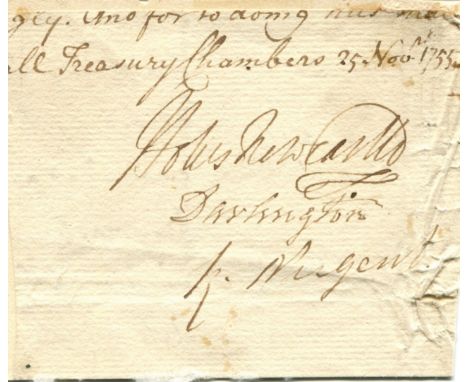 gly. And for so doing this
all Treasury Chambers 25 Novr. 1755
Holles Newcastle
Darlington
R. Nugent